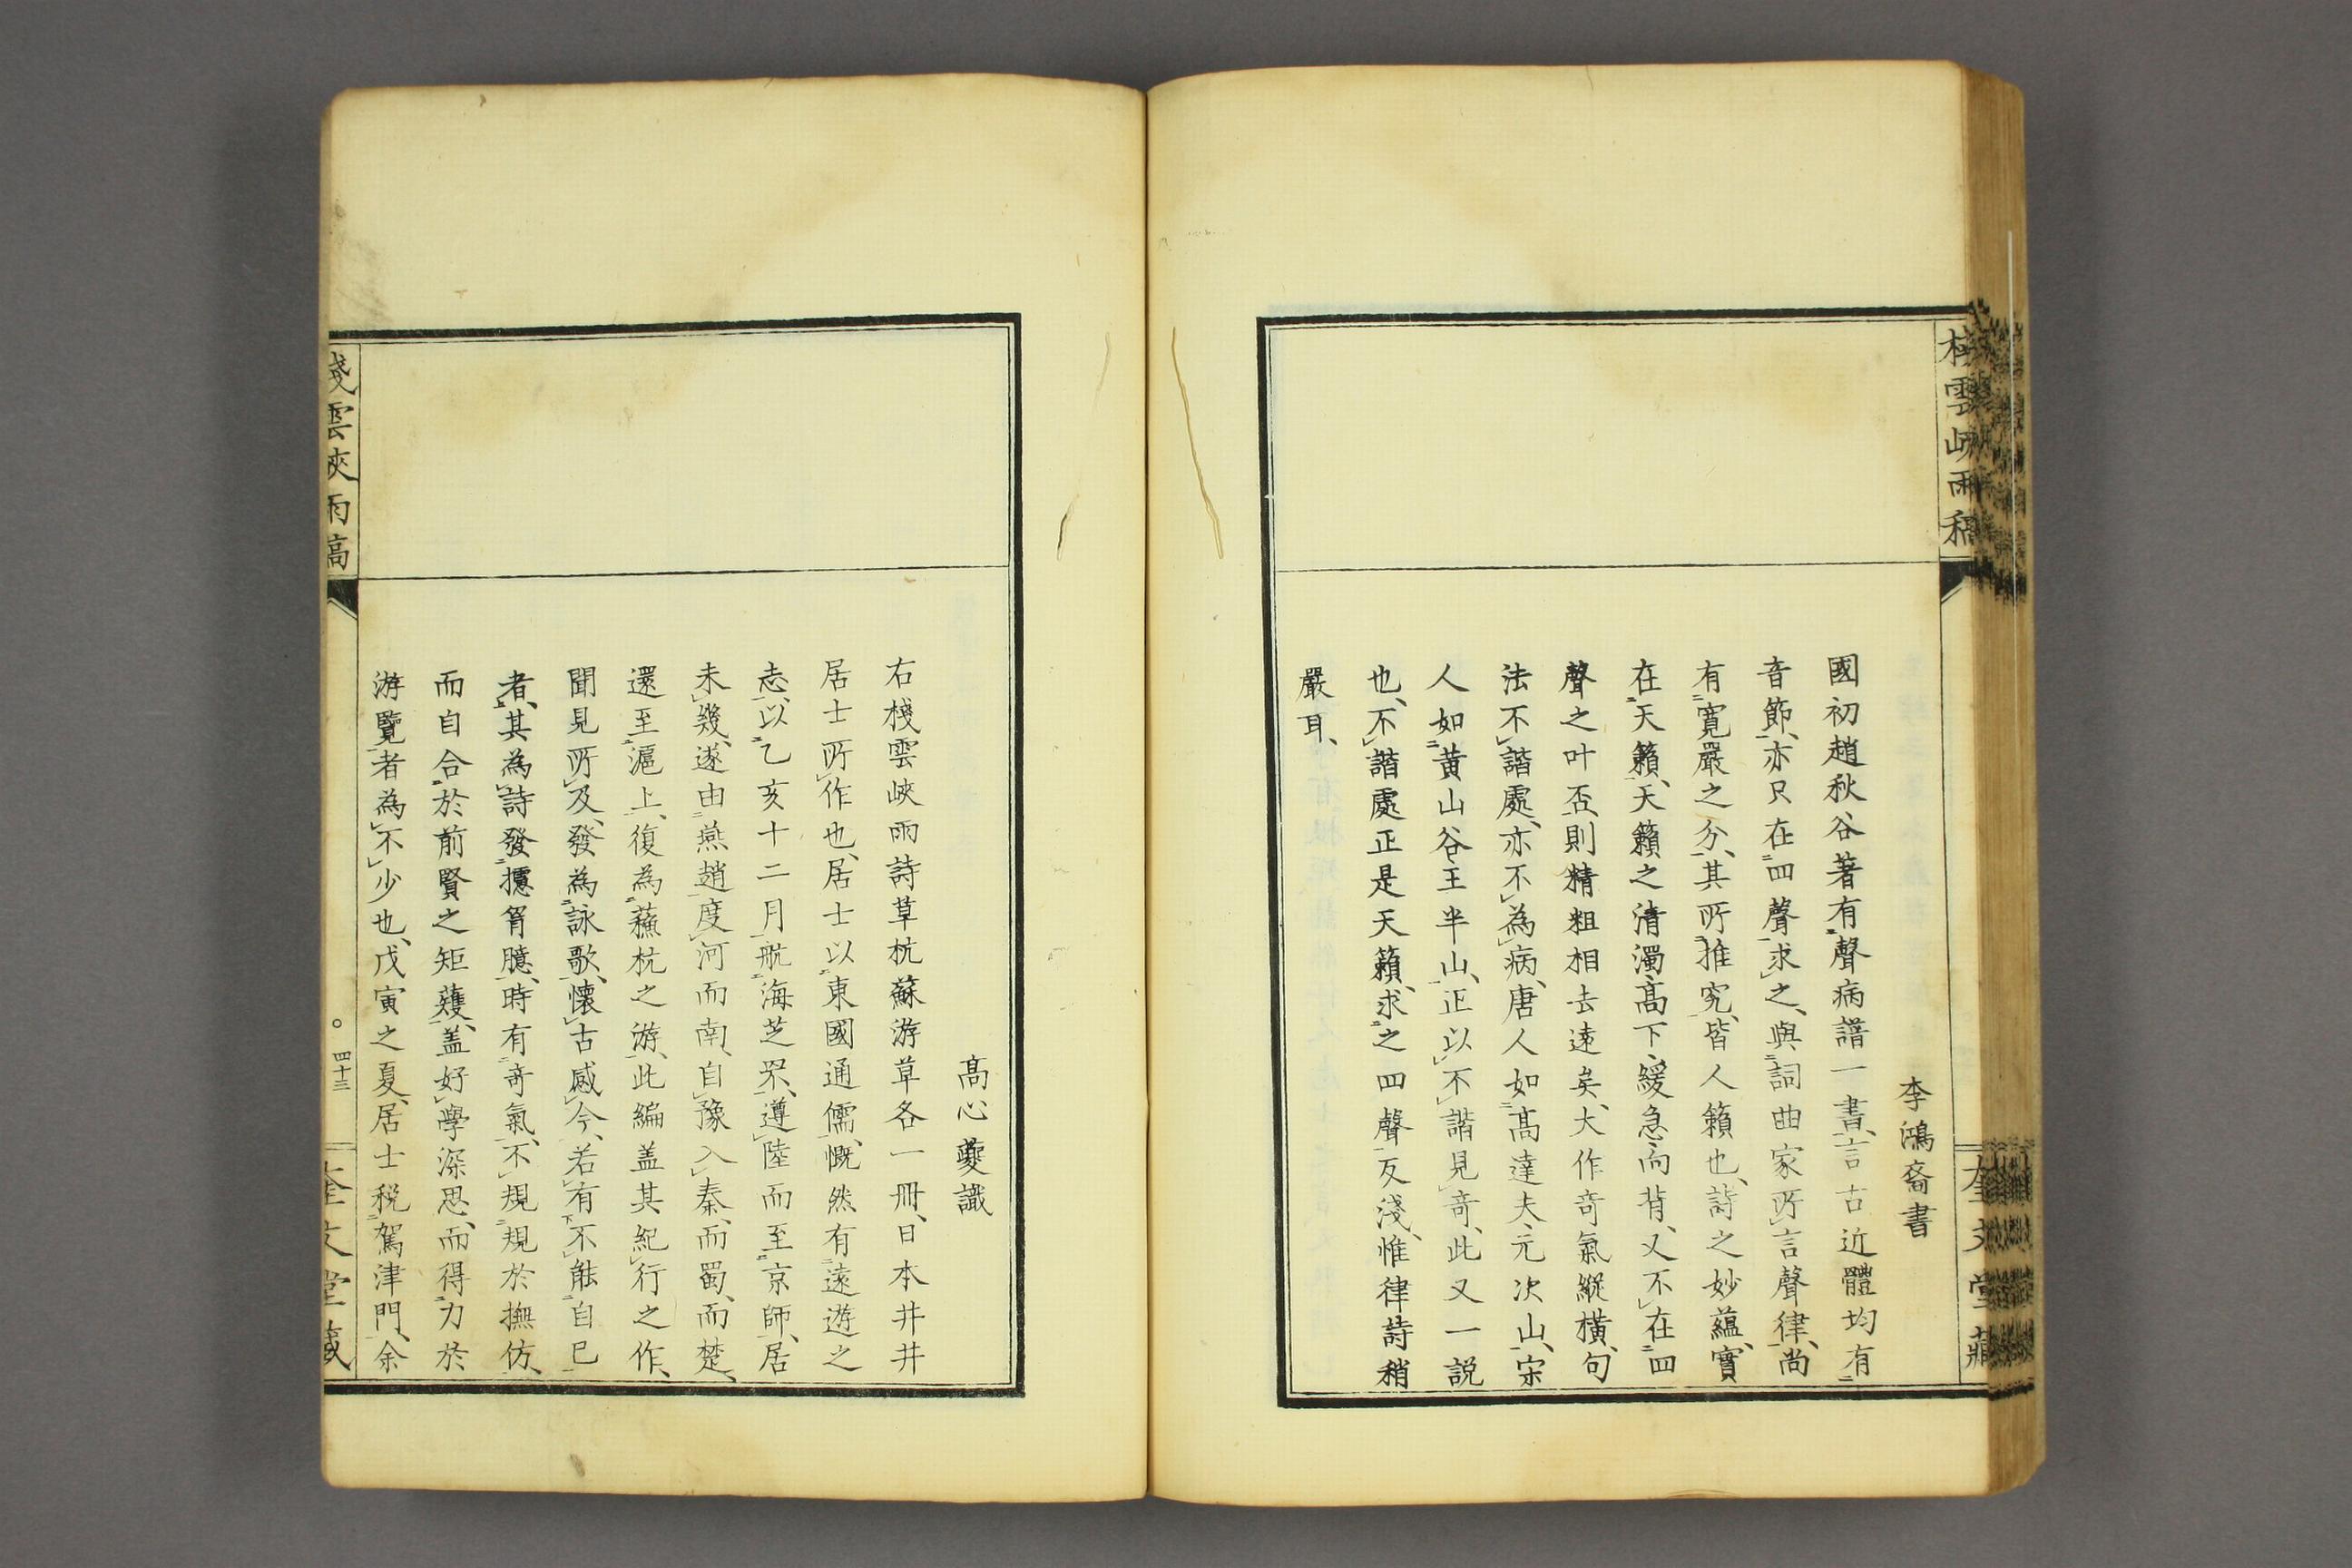 李鴻裔書
國初趙秋谷著有聲病譜一書、言古近體均有
音節、亦只在四聲求之、與詞曲家所言聲律、尚
有寬嚴之分、其所推究、皆人籟也、詩之妙蘊、實
在天籟、天籟之清濁高下緩急向背、又不在四
聲之叶否、則精粗相去遠矣、大作奇氣縱橫、句
法不諧處、亦不為病、唐人如高達夫、元次山、宋
人如黃山谷、王半山、正以不諧見奇、此又一説
也、不諧處正是天籟、求之四聲反淺、惟律詩稍
嚴耳、
高心夔識
右棧雲峽雨詩草杭蘇游草各一冊、日本井井
居士所作也、居士以東國通儒、慨然有遠遊之
志、以乙亥十二月航海芝罘、遵陸而至京師、居
未幾、遂由燕趙度河而南、自豫入秦、而蜀、而楚、
還至滬上、復為蘇杭之游、此編盖其紀行之作、
聞見所及、發為詠歌、懷古感今、若有不能自已
者、其為詩發攄胷臆、時有奇氣、不規規於撫仿、
而自合於前賢之矩矱、盖好學深思、而得力於
游覽者為不少也、戊寅之夏、居士税駕津門、余
棧雲峽雨稿
四十三
奎文堂藏